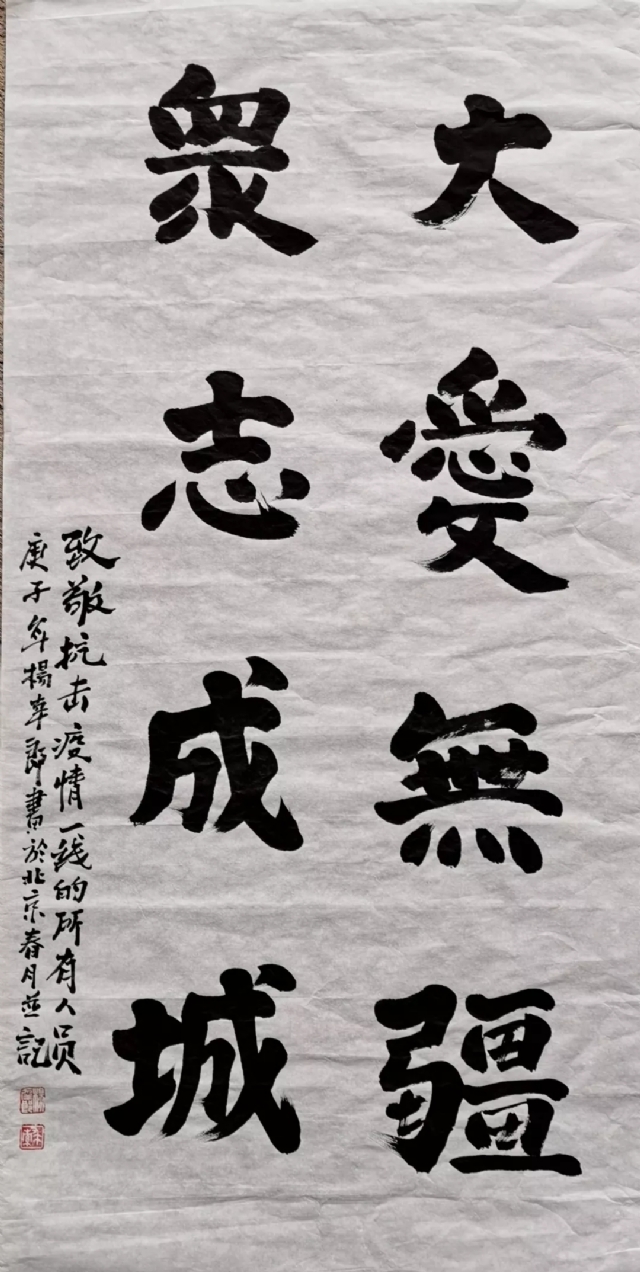 大愛無疆
衆志成城
致敬抗击疫情一綫的所有人员
庚子年楊幸郎書於北京春月並記